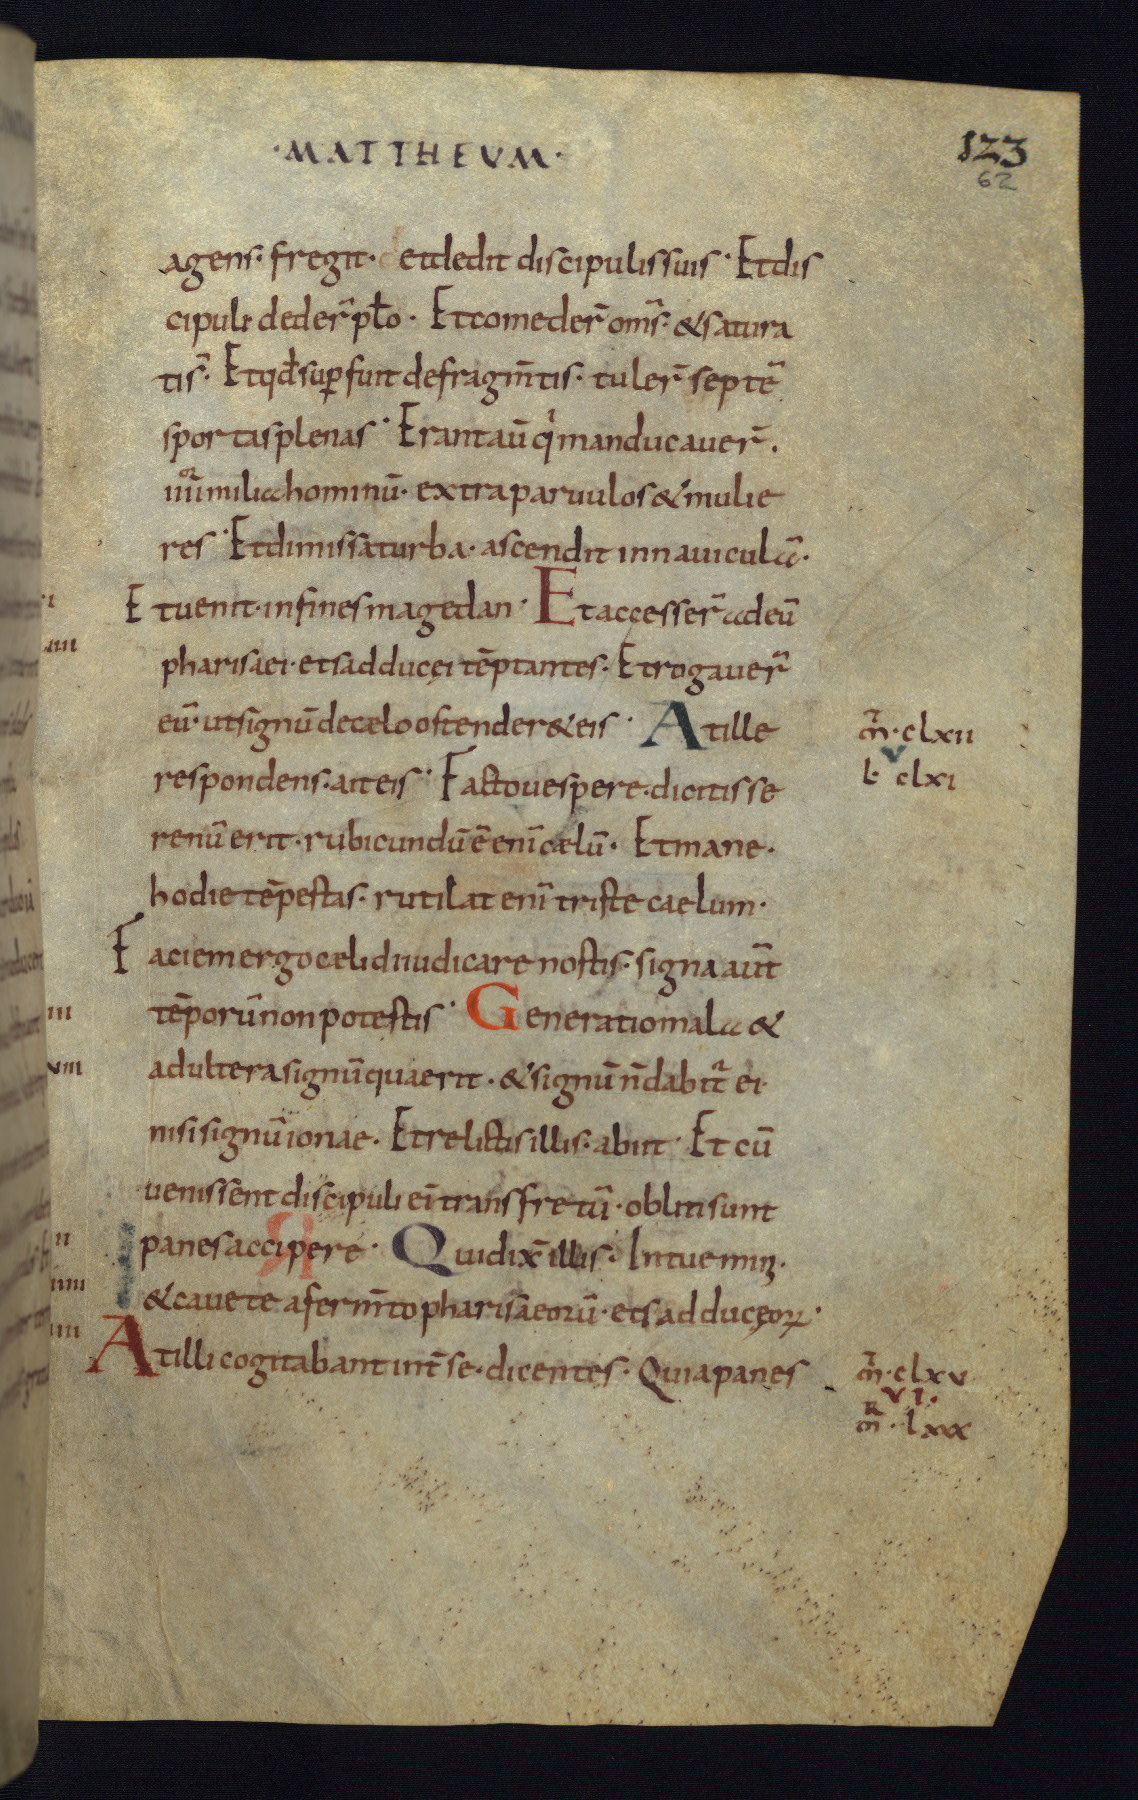 ·MATTHEUM·
123
62
agens· fregit· et dedit discipulis suis· Et dis
cipuli deder̄ pƚo· Et comeder̄ om̄s· & satura
tis̄· Et qđ sup̱fuit de fragm̄tis· tuler̄ septē
sportas plenas· Erant aū qͥ manducauer̄·
iiiiºʳ milia hominū· extra paruulos & mulie
res· Et dimissa turba· ascendit in nauiculā·
Et uenit· in fines magedan· Et accesser̄ ad eū
pharisaei· et sadducęi tēptantes· Et rogauer̄
eū· ut signū de cælo ostender& eis· At ille
m̄· clxii
respondens· ait eis· Facto uespere· dicitis se
v
l· clxi
renū erit· rubicundū ē enī cælū· Et mane·
hodie tēpestas· rutilat enī triste caelum·
Faciem ergo cæli diiudicare nostis· signa aut̄
tēporū non potestis· Generatio mala &
adultera signū quaerit· & signū n̄ dabit̄ ei·
nisi signū ionae· Et relictis illis· abiit· Et cū
uenissent discipuli ei trans fretū· obliti sunt
panes accipere· Qui dix̄ illis· Intuemin̄·
& cauete a ferm̄to pharisaeorū· et sadducęoꝝ·
At illi cogitabant int̄ se· dicentes· Quia panes
m̄· clxv
vi·
m̄· lxxx